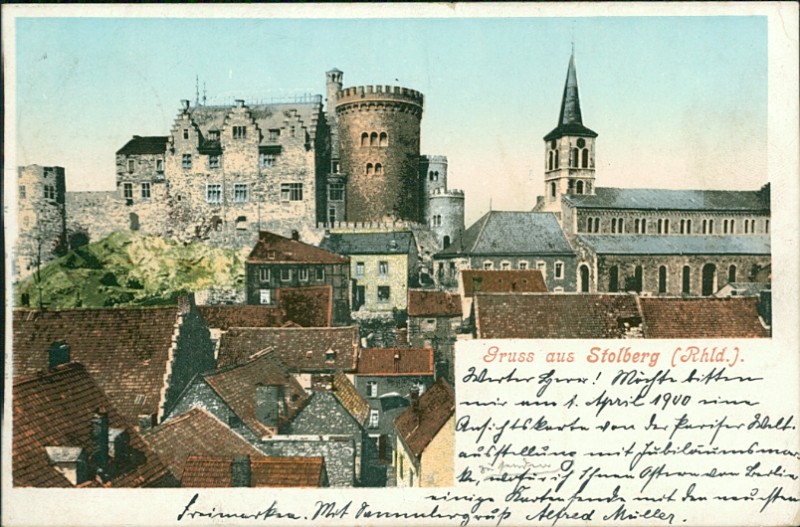 Gruss aus Stolberg (Rhld.).
Werter Herr! Möchte bitten
mir am 1. April 1900 eine
Ansichtskarte von der Pariser Welt-
ausstellung mit Jubiläumsmar-
zu senden
ke, wofür ich Ihnen Ostern von Berlin
einige Karten sende mit den neuesten
Freimarken. Mit Sammlergruß Alfred Müller.